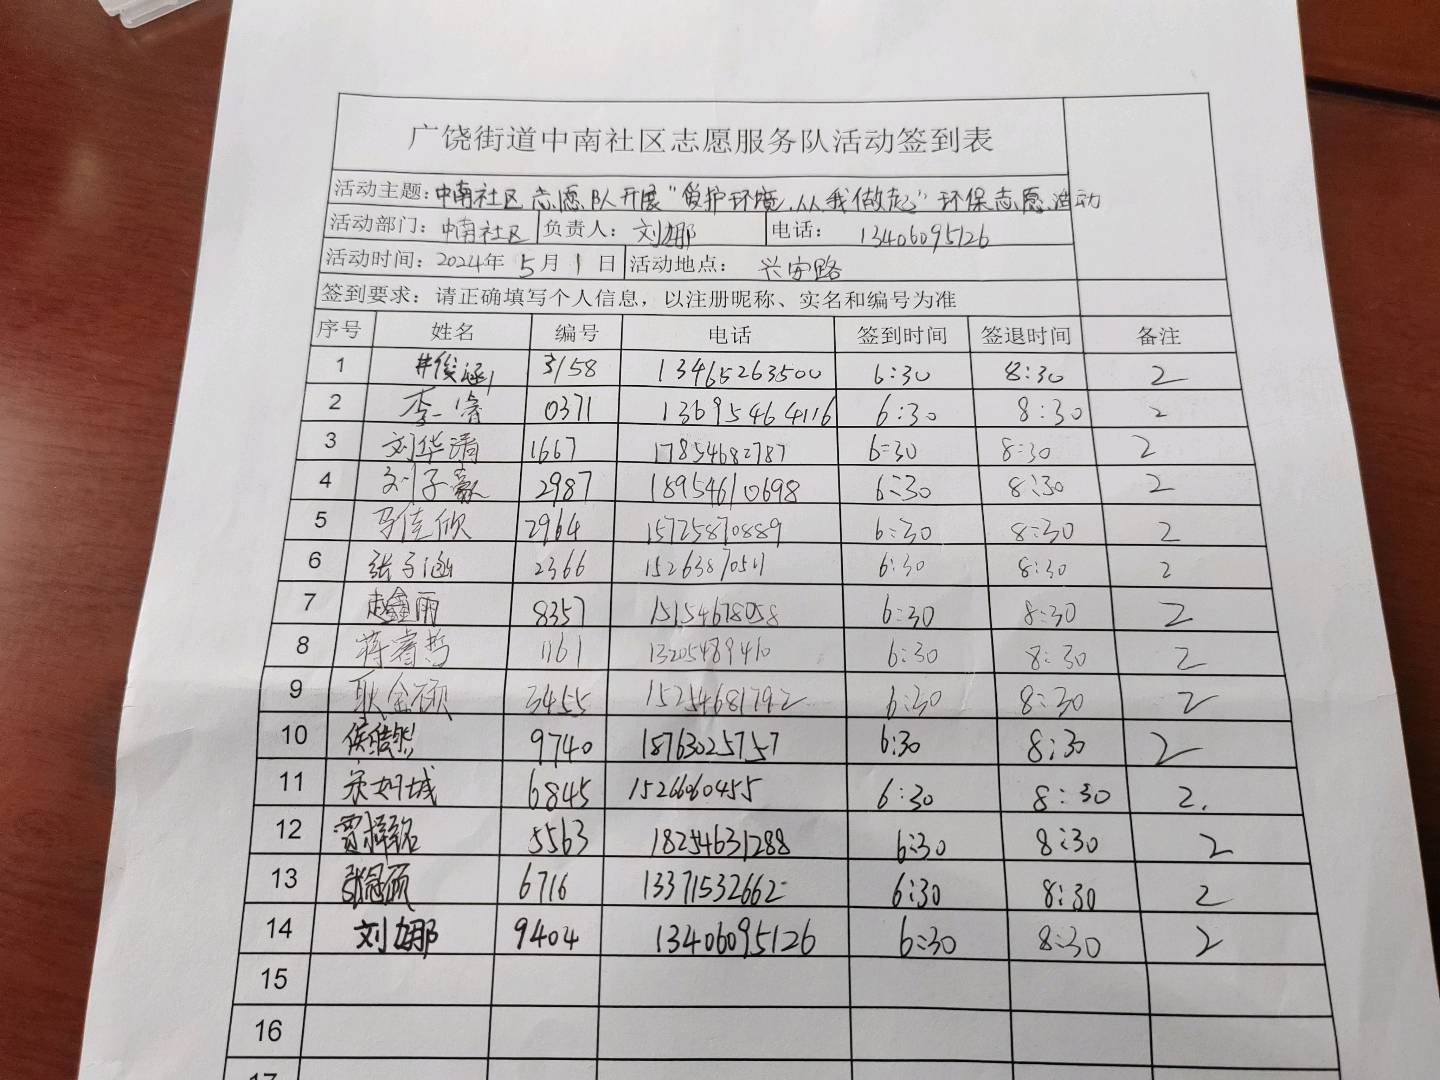 广饶街道中南社区志愿服务队活动签到表
活动主题：中南社区志愿队开展"爱护环境,从我做起"环保志愿活动
活动部门：中南社区 负责人：刘娜 电话： 13406095126
活动时间：2024年 5 月 1 日 活动地点： 兴安路
签到要求：请正确填写个人信息，以注册昵称、实名和编号为准
序号 姓名 编号 电话 签到时间 签退时间 备注
1 井俊涵 3158 13465263500 6:30 8:30 2
2 李一睿 0371 13695464116 6:30 8:30 2
3 刘华清 1667 17854682787 6:30 8:30 2
4 刘子豪 2987 18954610698 6:30 8:30 2
5 马佳欣 2964 15725870889 6:30 8:30 2
6 张子涵 2366 15263870511 6:30 8:30 2
7 赵鑫雨 8357 15154678058 6:30 8:30 2
8 蒋睿哲 1161 13205489410 6:30 8:30 2
9 耿金硕 3455 15254681792 6:30 8:30 2
10 9740 18763025757 6:30 8:30 2
11 6845 15266060455 6:30 8:30 2.
12 5563 18254631288 6:30 8:30 2
13 6716 13371532662 6:30 8:30 2
14 刘娜 9404 13406095126 6:30 8:30 2
15
16
17